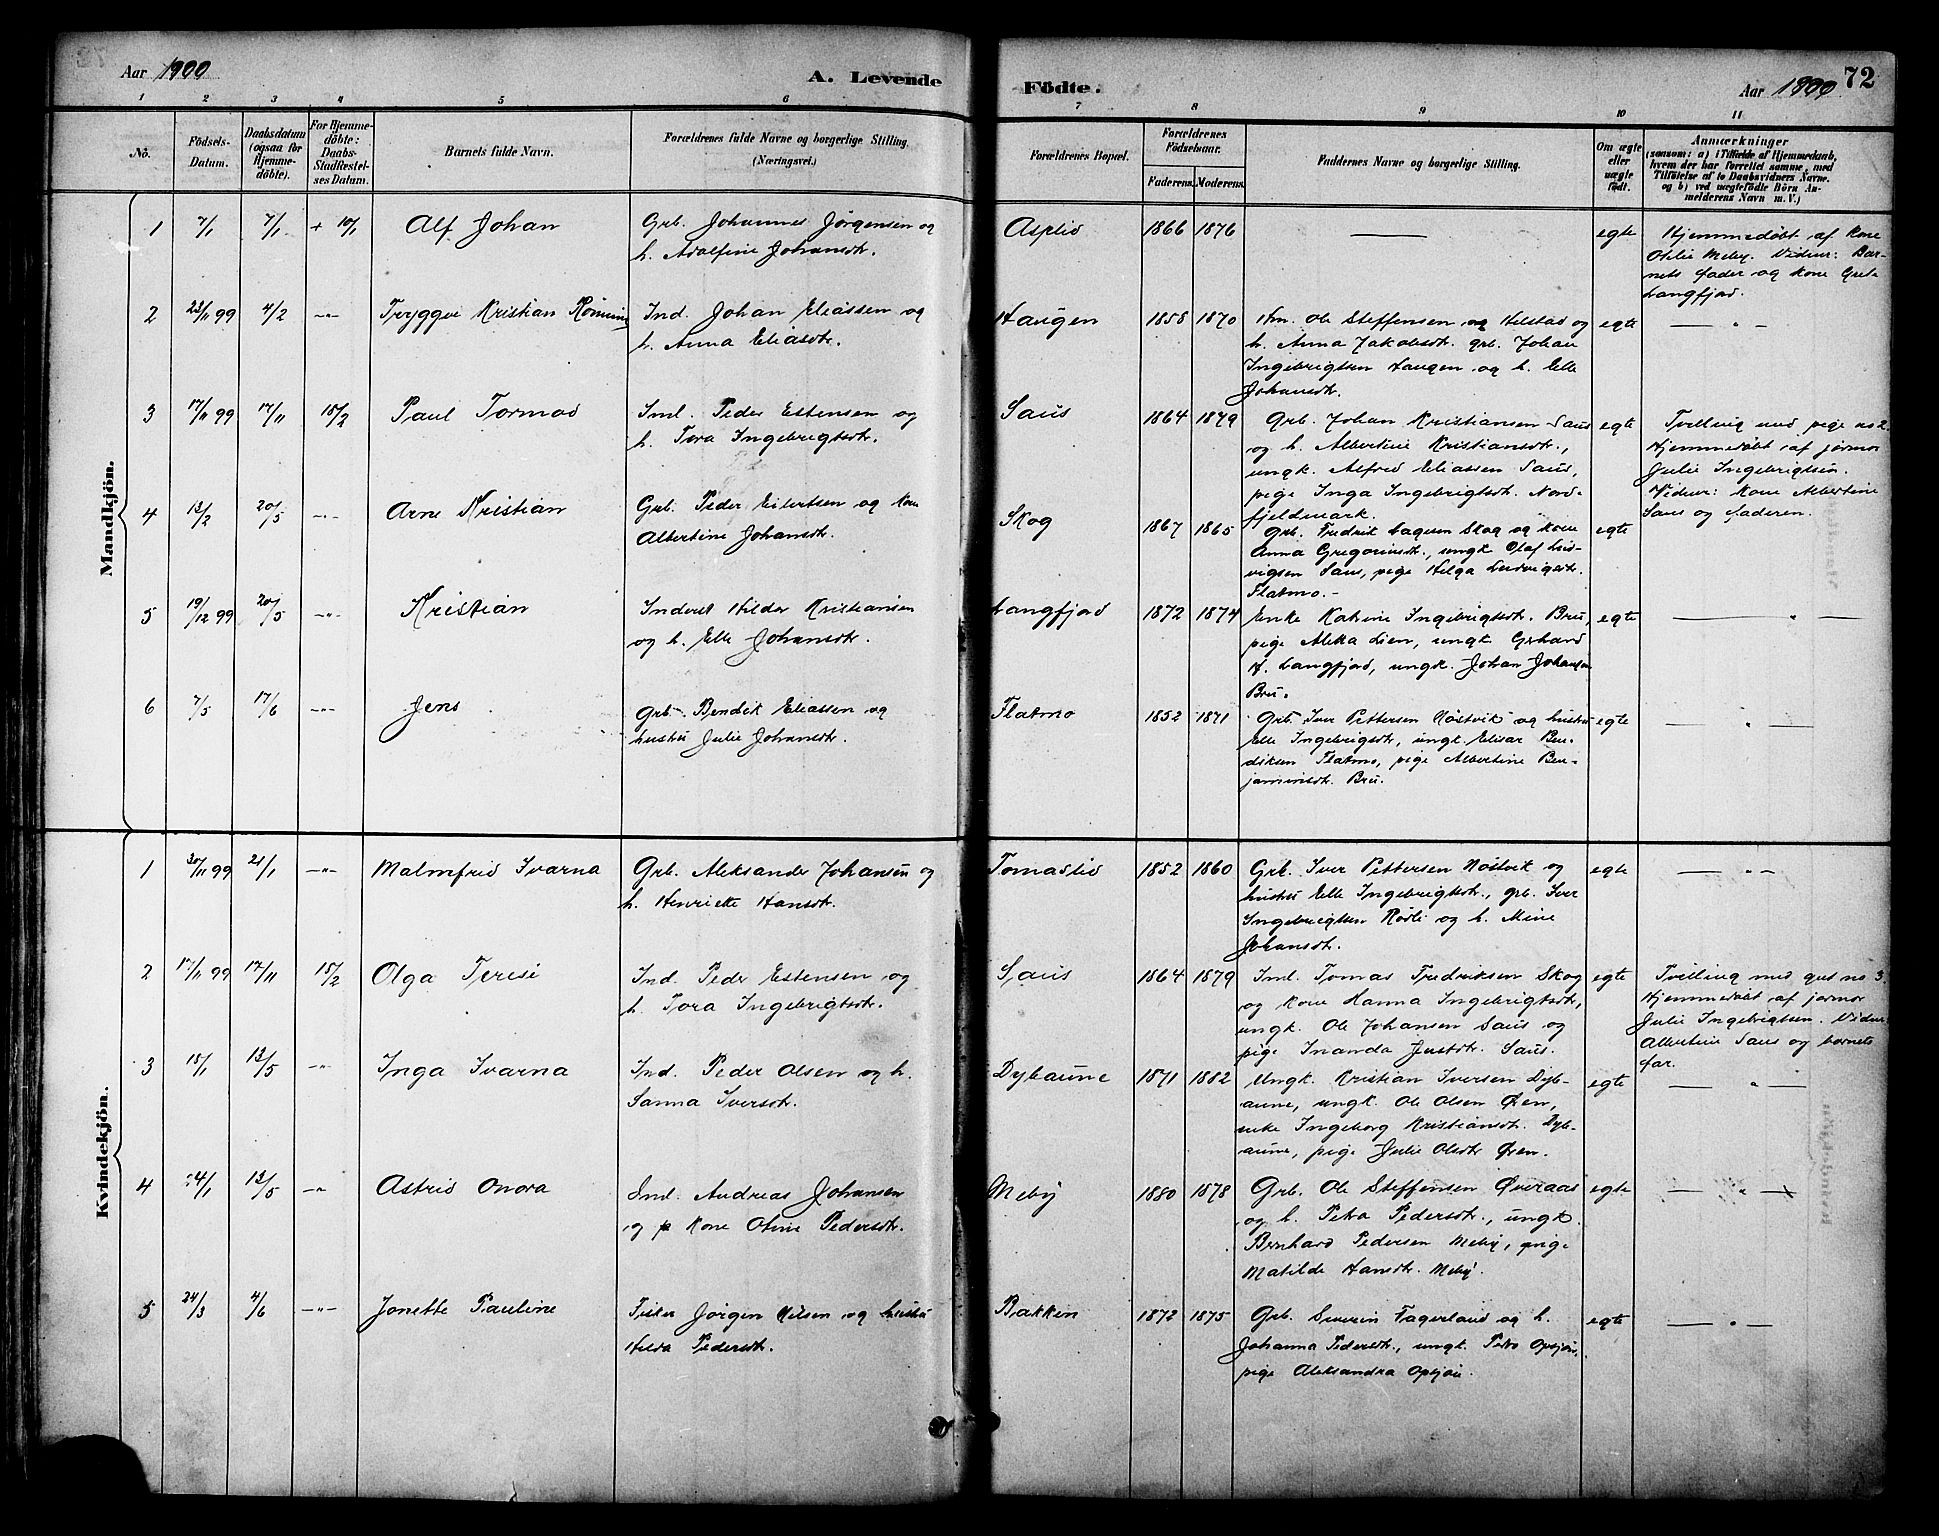 Aar 1900
A. Levende
Födte.
Aar 1900
72
1 2 3 4 5 6 7 8 9 10 11
No.
Födsels-
Datum.
Daabsdatum
(ogsaa för
Hjemme-
döbte).
For Hjemme-
döbte:
Daabs-
Stadfæstel-
ses Datum.
Barnets fulde Navn.
Forældrenes fulde Navne og borgerlige Stilling.
(Næringsvei.)
Forældrenes Bopæl.
Forældrenes
Födselsaar.
Faderens.
Moderens.
Faddernes Navne og borgerlige Stilling.
Om ægte
eller
uægte
født.
Anmærkninger
(saasom: a) i Tilfælde af Hjemmedaab,
hvem der har forrettet samme, med
Tilföielse af to Daabsvidners Navne,
og b) ved uægtefödte Börn An-
melderens Navn m. V.)
Mandkjön.
1 7/1 7/1 + 10/1 Alf Johan
Grb. Johannes Jørgensen og
h. Adolfine Johansdtr.
Asplid 1866 1876 — egte
Hjemmedøbt af Kone
Otilie Meby. Vidner: Bar-
nets fader og kone Grete
Langfjord.
2 23/11 99 4/2 -"- Tryggve Kristian Rønning
Ind. Johan Eliassen og
h. Anna Eliasdtr.
Haugen 1858 1870
Hm. Ole Steffensen og Hilstad og
h. Anna Jakobsdtr. grb. Johan
Ingebrigtsen Haugen og h. Elle
Johansdtr.
egte — " —
3 17/11 99 17/11 18/2 Paul Tormod
Ind. Peder Estensen og
h. Tora Ingebrigtsdtr.
Saus 1864 1879
Grb. Johan Kristiansen Saus
og h. Albertine Kristiansdtr.,
ungk. Alfred Eliassen Saus,
pige Inga Ingebrigtsdtr. Nord-
fjeldmark.
egte
Tvilling med pige no 2.
Hjemmedøbt af jormor
Julie Ingebrigtsen.
Vidner: kone Albertine
Saus og faderen.
4 13/2 20/5 -"- Arne Kristian
Grb. Peder Eilertsen og kone
Albertine Johansdtr.
Skog 1867 1865
Grb. Fredrik Aagesen Skog og kone
Anna Gregoriusdtr., ungk. Olaf Lud-
vigsen Saus, pige Helga Ludvigsdtr.
Flatmo.-
egte
5 19/12 99 20/5 -"- Kristian
Inderst Hilder Kristiansen
og h. Elle Johansdtr.
Langfjord 1872 1874
Enke Katrine Ingebrigtsdtr. Bru,
pige Aleka Lien, ungk. Gerhard
H. Langfjord, ungk. Johan Johansen
Bru.
egte — " —
6 7/5 17/6 -"- Jens
Grb. Bendik Eliassen og
hustru Julie Johansdtr.
Flatmo 1852 1871
Grb. Iver Pettersen Nøstvik og hustru
Elle Ingebrigtsdtr, ungk. Elisar Ben-
diksen Flatmo, pige Albertine Ben-
jaminsdtr. Bru.
egte — " —
Kvindekjön.
1 30/11 99 21/1 -"- Malmfrid Ivarna
Grb. Aleksander Johansen og
h. Henriette Hansdtr.
Tomaslid 1852 1860
Grb. Iver Pettersen Nøstvik og
hustru Elle Ingebrigtsdtr., grb. Iver
Ingebrigtsen Rødli og h. Mine
Johansdtr.
egte — " —
2 17/11 99 17/11 18/2 Olga Terese
Ind. Peder Estensen og
h. Tora Ingebrigtsdtr.
Saus 1864 1879
Ind. Tomas Fredriksen Skog
og kone Hanna Ingebrigtsdtr,
ungk. Ole Johansen Saus og
pige Inanda Justdtr. Saus.
egte
Tvilling med gut no 3.
Hjemmedøbt af jormor
Julie Ingebrigtsen. Vidner
Albertine Saus og barnets
far.
3 18/1 13/5 -"- Inga Ivarna
Ind. Peder Olsen og h.
Sanna Iversdtr.
Dybaune 1871 1882
Ungk. Kristian Iversen Dyb-
aune, ungk. Ole Olsen Øren,
enke Ingeborg Kristiansdtr. Dyb-
aune, pige Julie Olsdtr Øren.
egte — " —
4 24/1 13/5 -"- Astrid Onora
Ind. Andreas Johansen
og p kone Otine Pedersdtr.
Meby 1880 1878
Grb. Ole Steffensen Øveraas
og h. Petra Pedersdtr., ungk.
Bernhard Pedersen Meby, pige
Matilde Hansdtr. Meby.
egte — " —
5 24/3 4/6 -"- Jonette Pauline
Fisker Jørgen Nilsen og hustru
Hilda Pedersdtr.
Bakken 1872 1875
Grb. Severin Fagerland og h.
Johanna Pedersdtr., ungk. Petro Opsjøn,
pige Aleksandra Opsjøn.
egte — " —